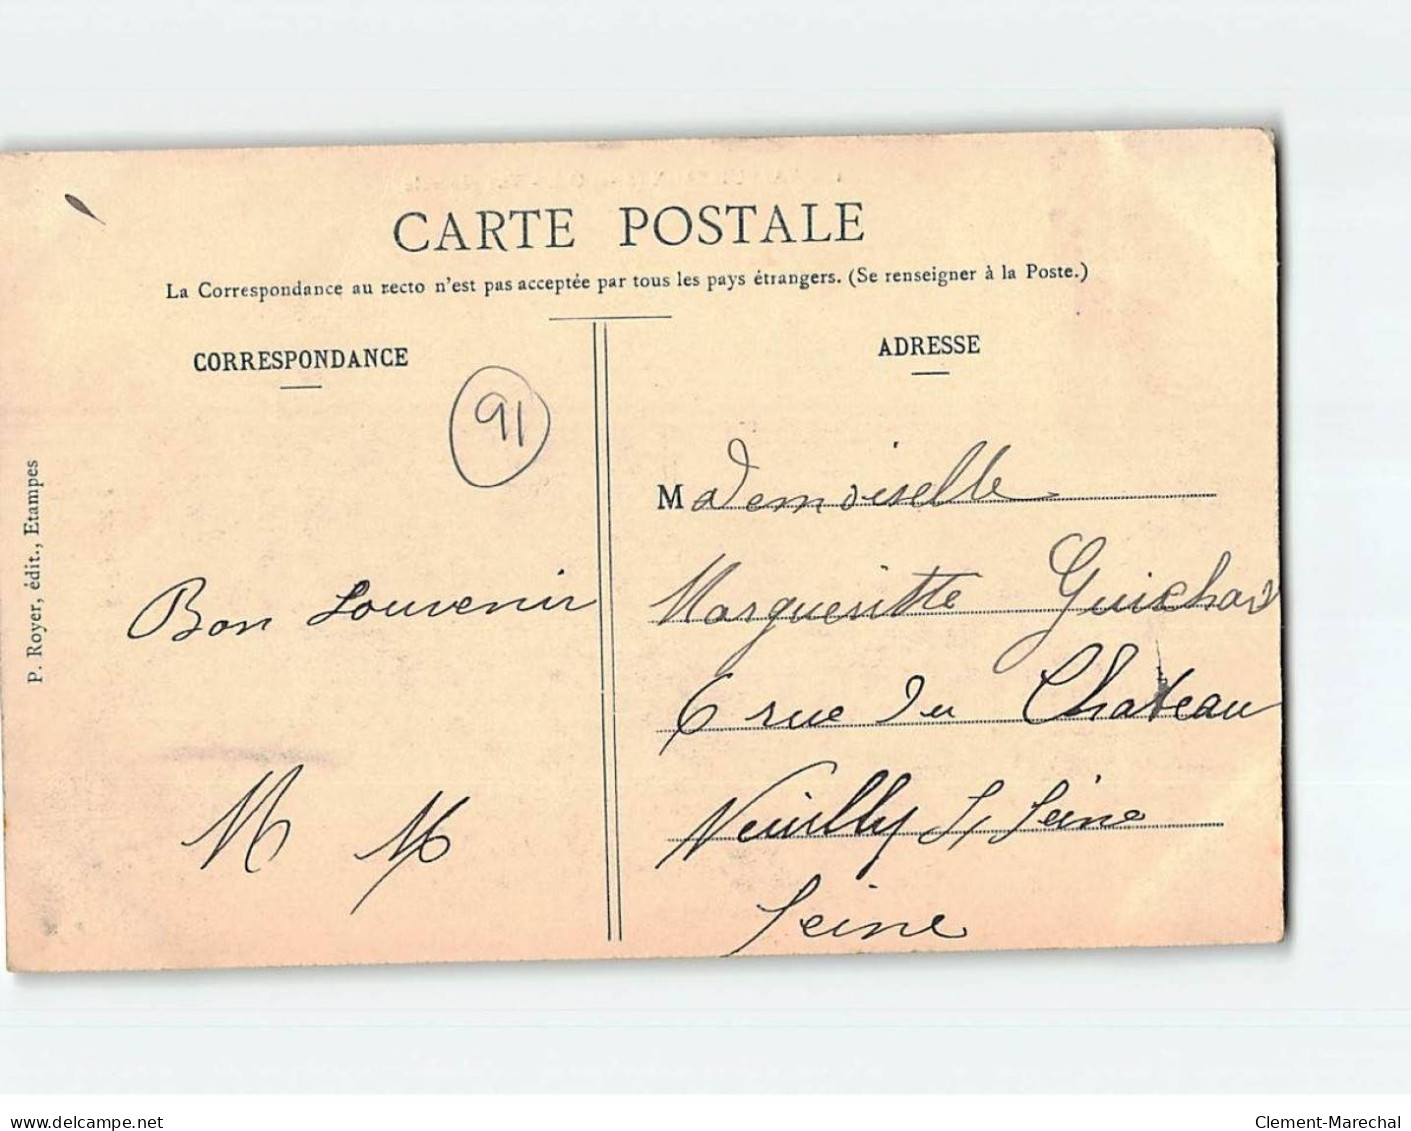 CARTE POSTALE
La Correspondance au recto n'est pas acceptée par tous les pays étrangers. (Se renseigner à la Poste.)
CORRESPONDANCE
ADRESSE
91
P. Royer, édit., Etampes
Bon Souvenir
M M
Mademoiselle
Margueritte Guichard
6 rue du Chateau
Neuilly s/ Seine
Seine
delcampe.net
Clement-Marechal